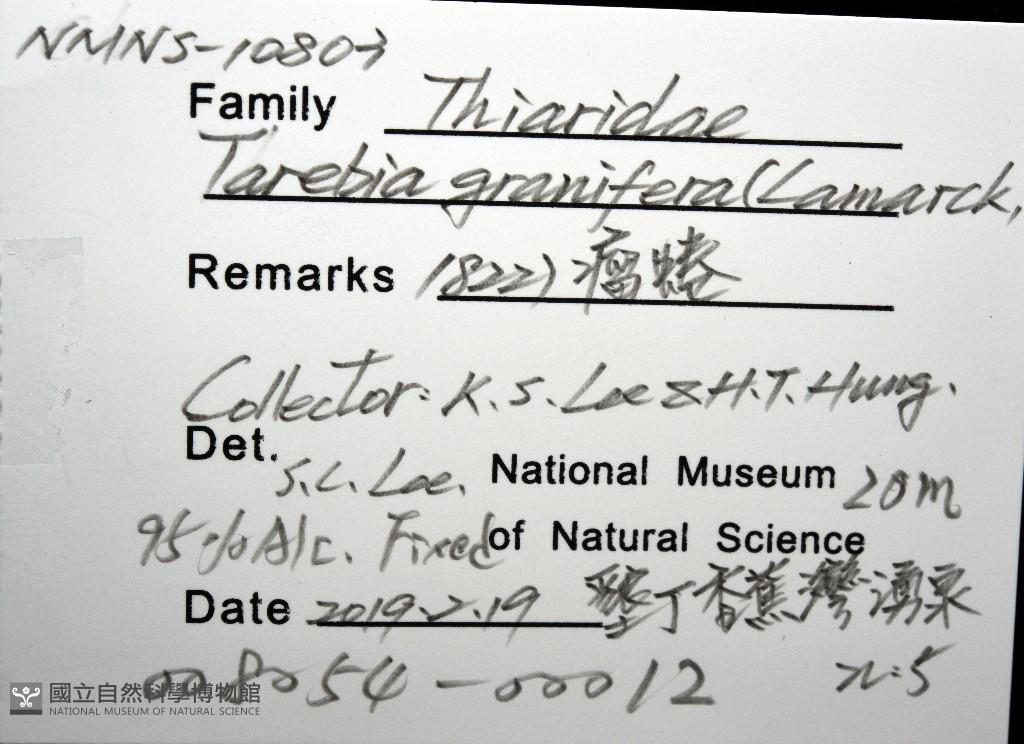 NMNS-10803
Family Thiaridae
Tarebia granifera (Lamarck,
Remarks 1822) 瘤蜷
Collector: K. S. Lee & H.T. Hung.
Det. S. C. Lee. National Museum 20m
95% Alc. Fixed of Natural Science
Date 2019.2.19 墾丁香蕉灣湧泉
008054-00012 n:5
國立自然科學博物館
NATIONAL MUSEUM OF NATURAL SCIENCE